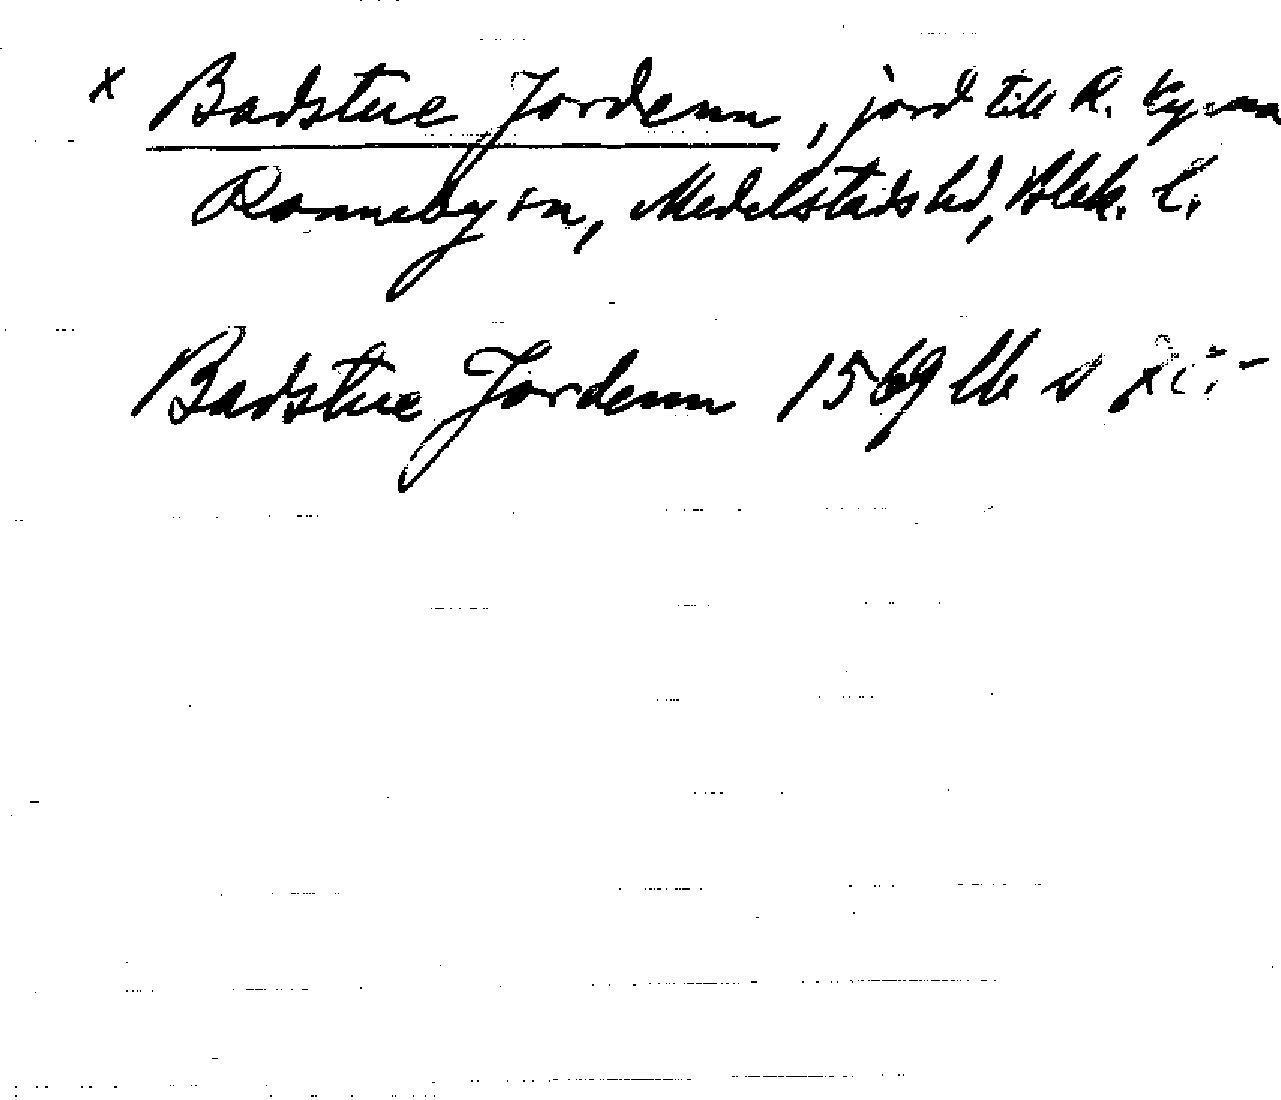 x Badstue Jordenn, jord till R. kyrka
Ronneby sn, Medelstads hd, Blek. l.
Badstue Jordenn 1569 lb s